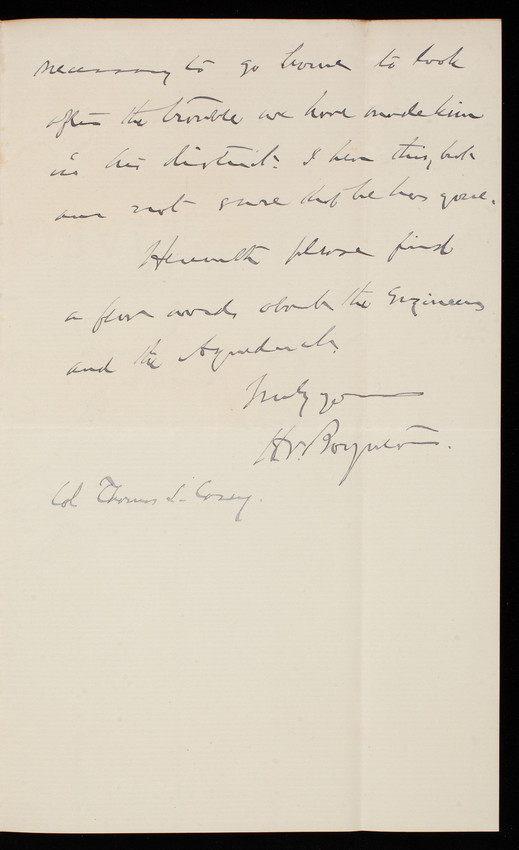 necessary to go home to look
after the trouble we have made him
in his district. I hear this, but
am not sure that he has gone.
Herewith please find
a few words about the Engineers
and the Aqueduct.
Truly yo
H. V. Boynton.
Col Thomas L. Casey.